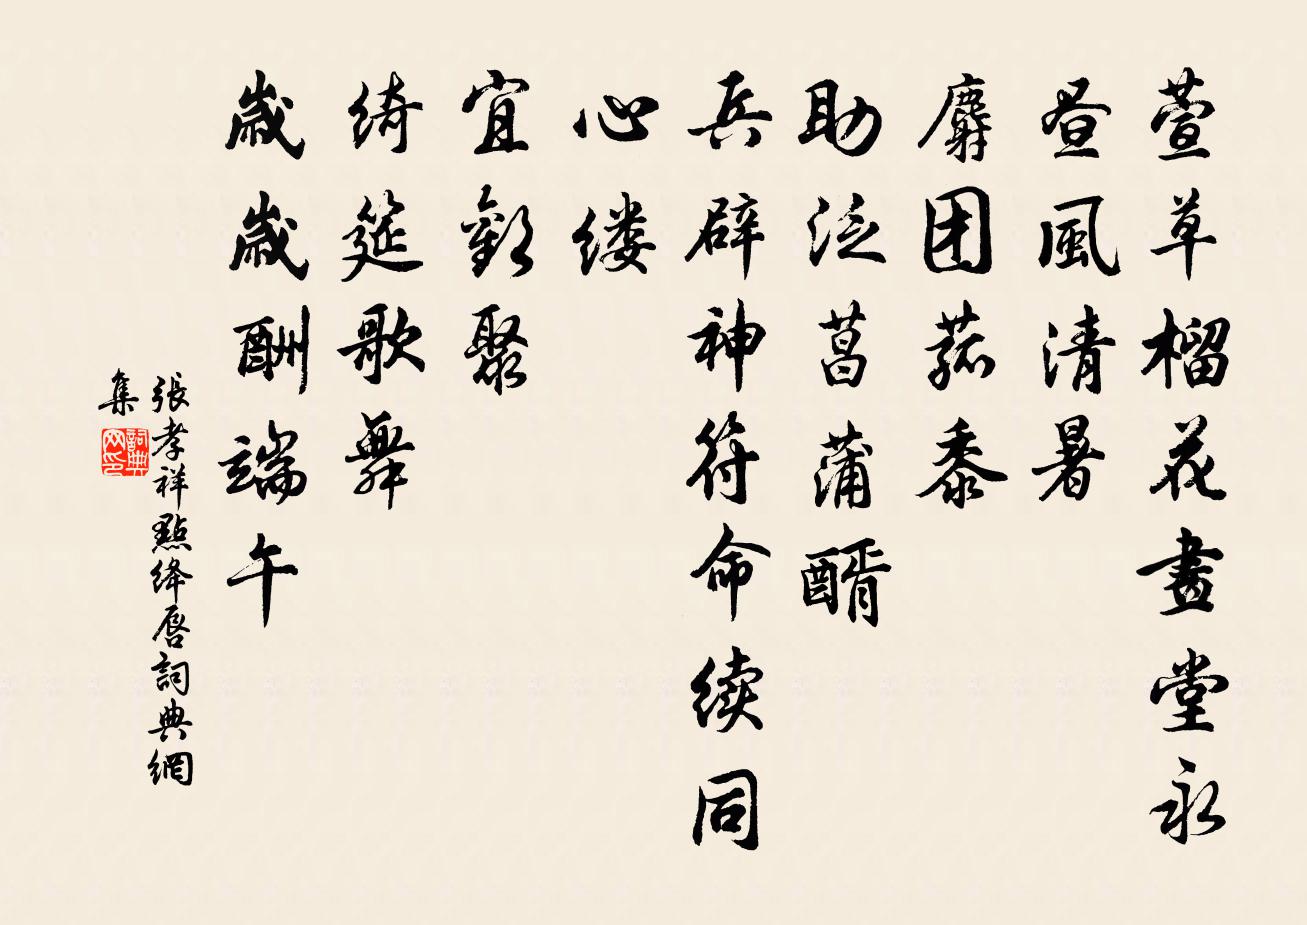 萱草榴花畫堂永
昼風清暑
麝团菰黍
助泛菖蒲醑
兵辟神符命续同
心缕
宜歡聚
綺筵歌舞
歲歲酬端午
張孝祥點绛唇詞典網
集
詞典
网印